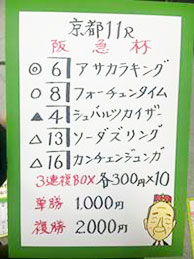 京都11R
阪急杯
◎ 6 アサカラキング
○ 8 フォーチュンタイム
▲ 4 シュバルツカイザー
△ 13 ソーダズリング
△ 16 カンチェンジュンガ
3連複BOX 各300円×10
単勝 1,000円
複勝 2,000円